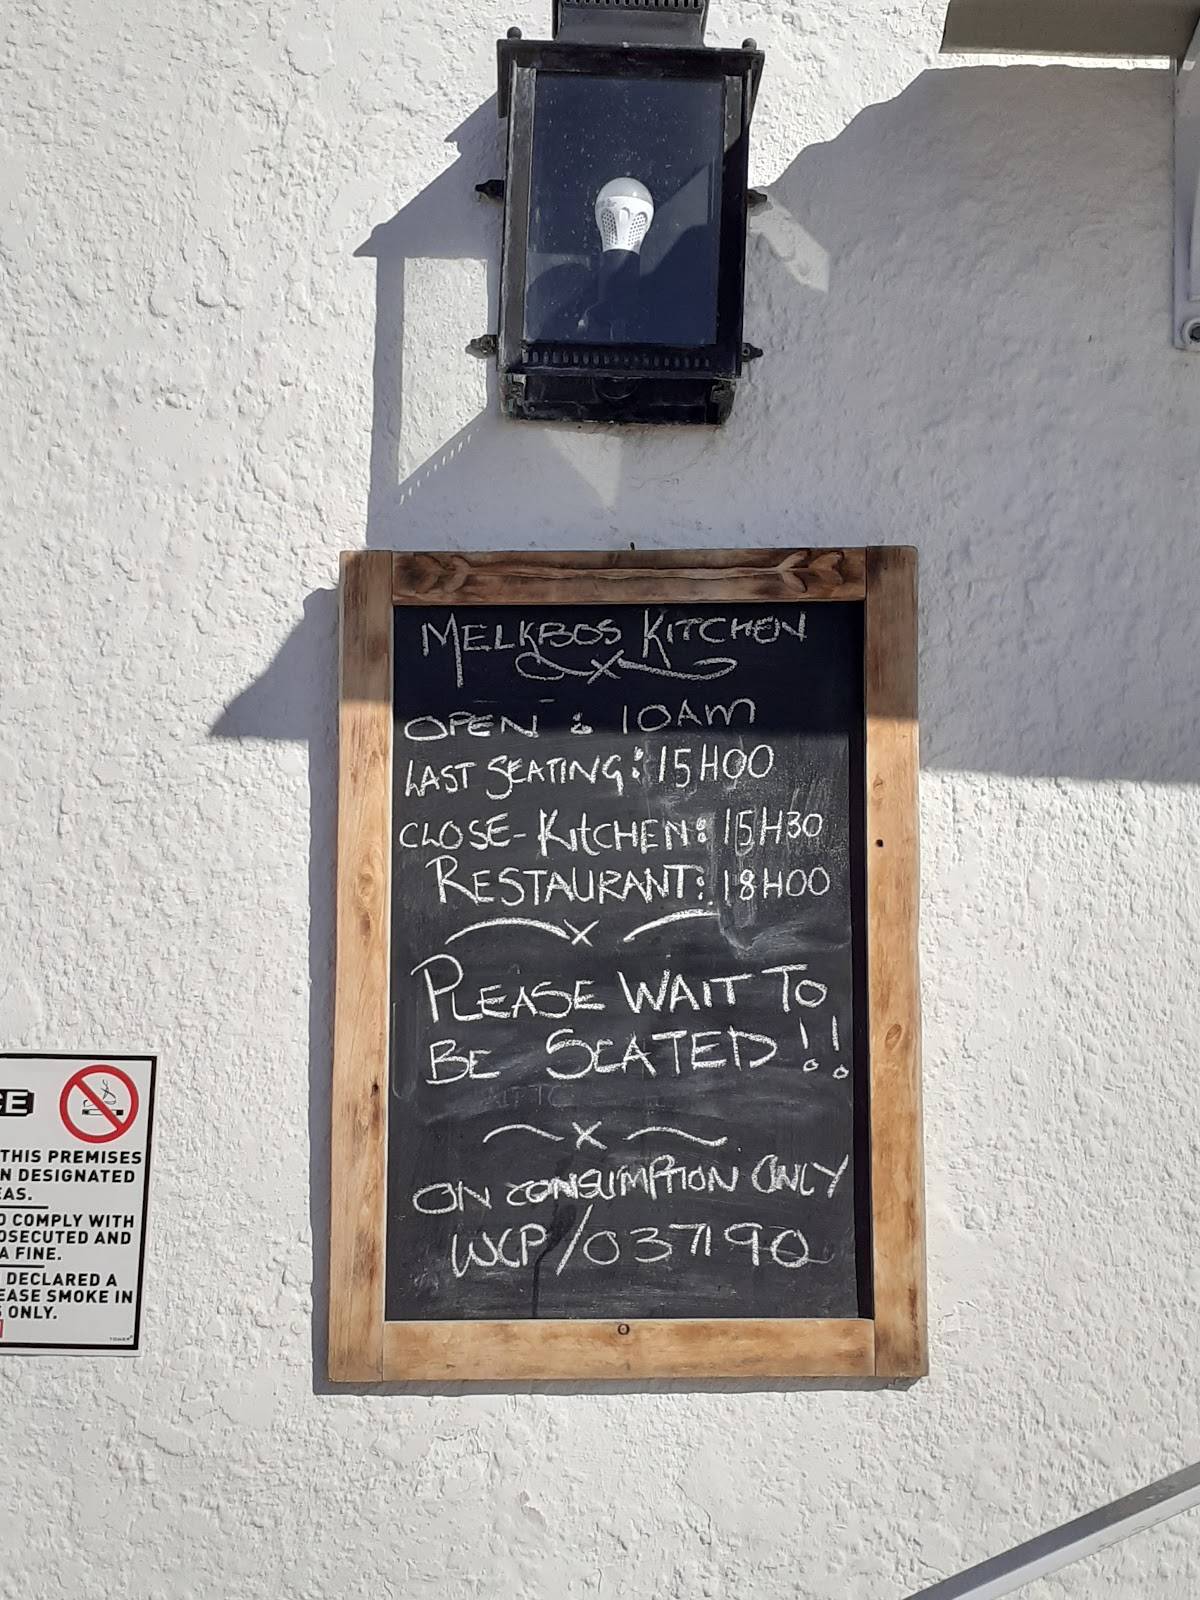 MELKBOS KITCHEN
OPEN : 10AM
LAST SEATING: 15H00
CLOSE- KITCHEN: 15H30
RESTAURANT: 18H00
PLEASE WAIT TO
BE SEATED!!
ON CONSUMPTION ONLY
WCP/037190
CE
THIS PREMISES
N DESIGNATED
EAS.
O COMPLY WITH
OSECUTED AND
A FINE.
DECLARED A
EASE SMOKE IN
S ONLY.
TOWER